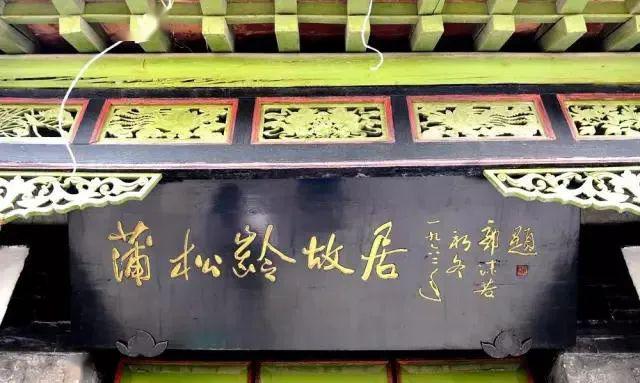 蒲松龄故居
一九六二年
初冬
郭沫若
题